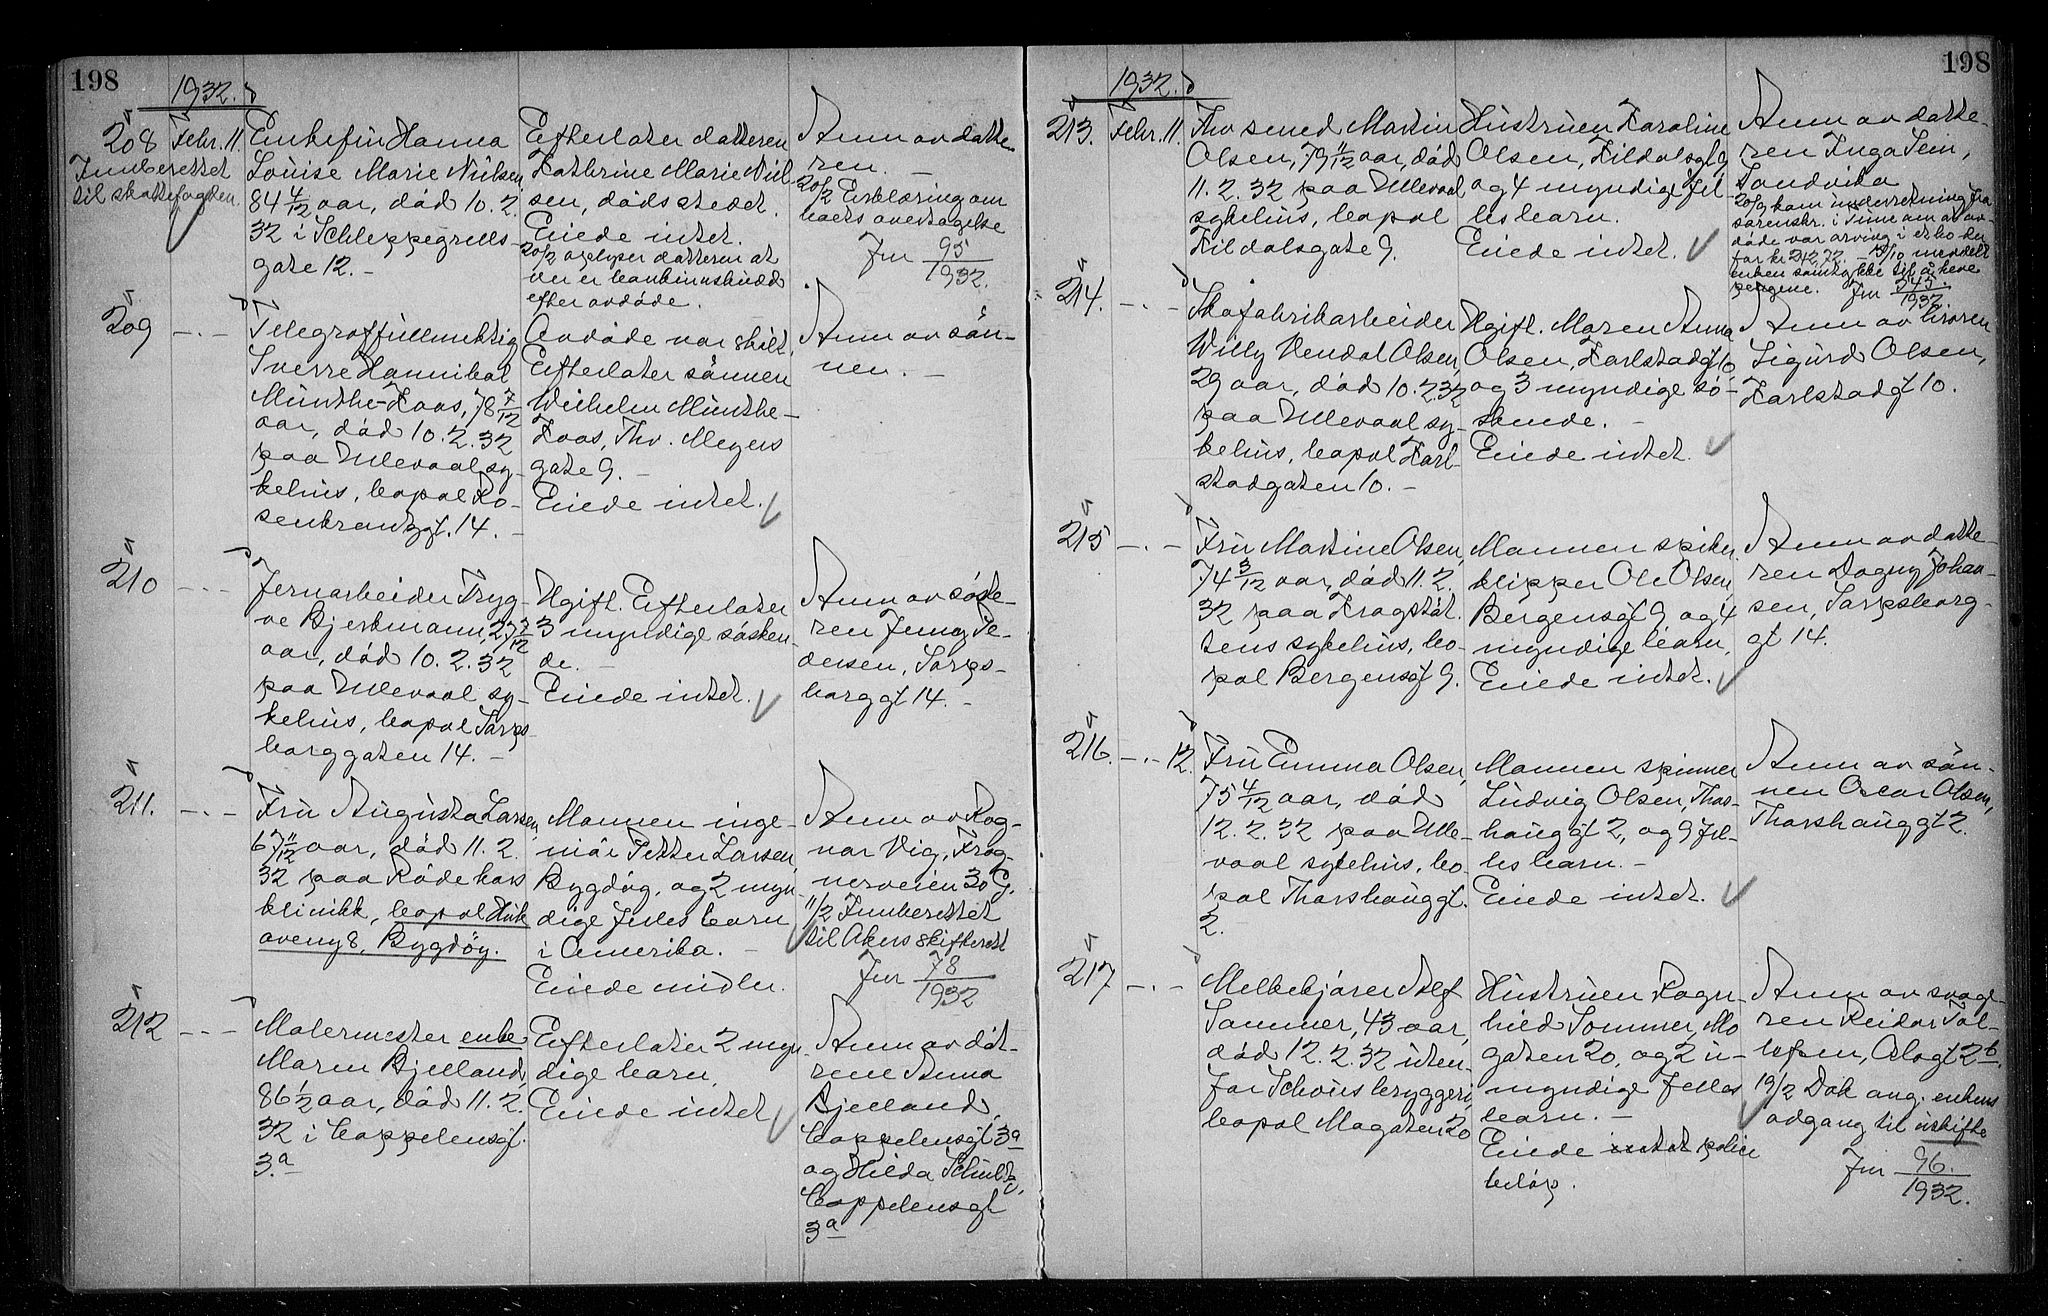 198
1932.
208 Febr. 11.
Innberettet
til skattefogden.
Enkefru Hanna
Louise Marie Nielsen,
84 4/12 aar, död 10. 2.
32 i Schleppegrells-
gate 12. -
Efterlater datteren
Kathrine Marie Niel-
sen, dödsstedet.
Eiede intet.
20/2 oplyser datteren at
der er bankinnskudd
efter avdöde.
Anm av datte-
ren. -
20/2 Erklæring om
boets overtagelse
Jnr 95/1932.
209 - . -
Telegraffullmektig
Sverre Hannibal
Münthe-Kaas, 78 7/12
aar, död 10. 2. 32
paa Ullevaal sy-
kehus, bopæl Ro-
senkrantzgt. 14. -
Avdöde var skilt.
Efterlater sönnen
Wilhelm Münthe-
Kaas, Thv. Meyers
gate 9. -
Eiede intet.
Anm av sön-
nen. -
210 - - -
Jernarbeider Tryg-
ve Bjerkmann, 27 7/12
aar, död 10. 2. 32
paa Ullevaal sy-
kehus, bopæl Sarps-
borggaten 14. -
Ugift. Efterlater
3 myndige sösken-
de. -
Eiede intet.
Anm av söste-
ren Jenny Pe-
dersen, Sarps-
borggt 14. -
211. - . -
Fru Augusta Larsen,
67 11/12 aar, död 11. 2.
32 paa Röde kors
klinikk, bopæl Huk
aveny 8, Bygdöy.
Mannen inge-
niör Petter Larsen,
Bygdöy, og 2 myn-
dige felles barn
i Amerika. -
Eiede midler.
Anm av Rag-
nar Vig, Frog-
nerveien 30 G.
11/2 Innberettet
til Akers skifterett
Jnr 78/1932
212 - - -
Malermester enke
Maren Bjelland,
86 1/2 aar, död 11. 2.
32 i Cappelensgt.
3a
Efterlater 2 myn-
dige barn.
Eiede intet
Anm av döt-
rene Anna
Bjelland,
Cappelensgt 3a
og Hilda Schultz,
Cappelensgt
3a
198
1932.
213. Febr. 11.
Fhv smed Martin
Olsen, 79 11/12 aar, död
11. 2. 32 paa Ullevaal
sykehus, bopæl
Fildalsgate 9.
Hustruen Karoline
Olsen, Fildalsgt 9
og 4 myndige fel-
les barn.
Eiede intet.
Anm av datte-
ren Inga Sein,
Sandvika
20/9 kom underretning fra
sorenskr. i Time om at av-
döde var arving i et bo der
for kr 242,72. - 13/10 meddelt
enken samtykke til å heve
pengene. Jnr 545./1932.
214. - . -
Skofabrikarbeider
Willy Vendal Olsen,
29 aar, död 10. 2. 32
paa Ullevaal sy-
kehus, bopæl Karl-
stadgaten 10. -
Ugift. Moren Anna
Olsen, Karlstadgt 10
og 3 myndige sö-
skende. -
Eiede intet.
Anm av broren
Sigurd Olsen,
Karlstadgt 10.
215 - . -
Fru Martine Olsen,
74 3/12 aar, död 11. 2.
32 paa Krogstöt-
tens sykehus, bo-
pæl Bergensgt 9.
Mannen spiker-
klipper Ole Olsen,
Bergensgt 9 og 4
myndige barn,
Eiede intet.
Anm av datte-
ren Dagny Johan-
sen, Sarpsborg-
gt 14.
216. - . - 12.
Fru Emma Olsen,
75 4/12 aar, död
12. 2. 32 paa Ulle-
vaal sykehus, bo-
pæl Thorshauggt.
2.
Mannen spinner
Ludvig Olsen, Thors-
hauggt 2, og 9 fel-
les barn. -
Eiede intet.
Anm av sön-
nen Oscar Olsen,
Thorshauggt 2.
217 - . -
Melkekjörer Alf
Sommer, 43 aar,
död 12. 2. 32 uten-
for Schous bryggeri,
bopæl Mogaten 20
Hustruen Ragn-
hild Sommer, Mo
gaten 20, og 2 u-
myndige felles
barn. -
Eiede intet police
belöp.
Anm av svoge-
ren Reidar Tol-
lefsen, Olagt 2b.
19/2 Dok ang. enkens
adgang til uskifte
Jnr 96./1932.